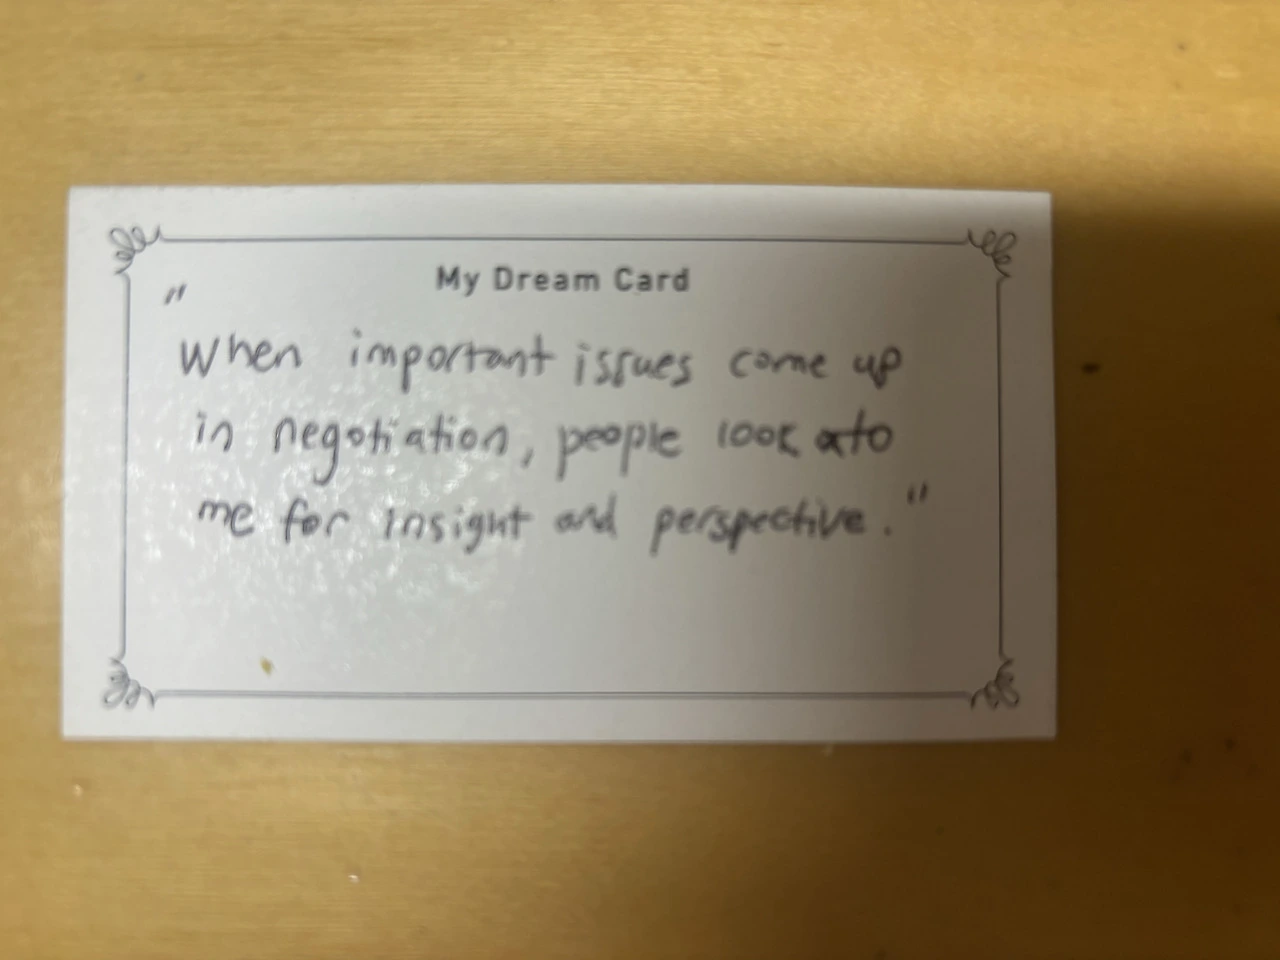 My Dream Card
"
When important issues come up
in negotiation, people look to
me for insight and perspective."